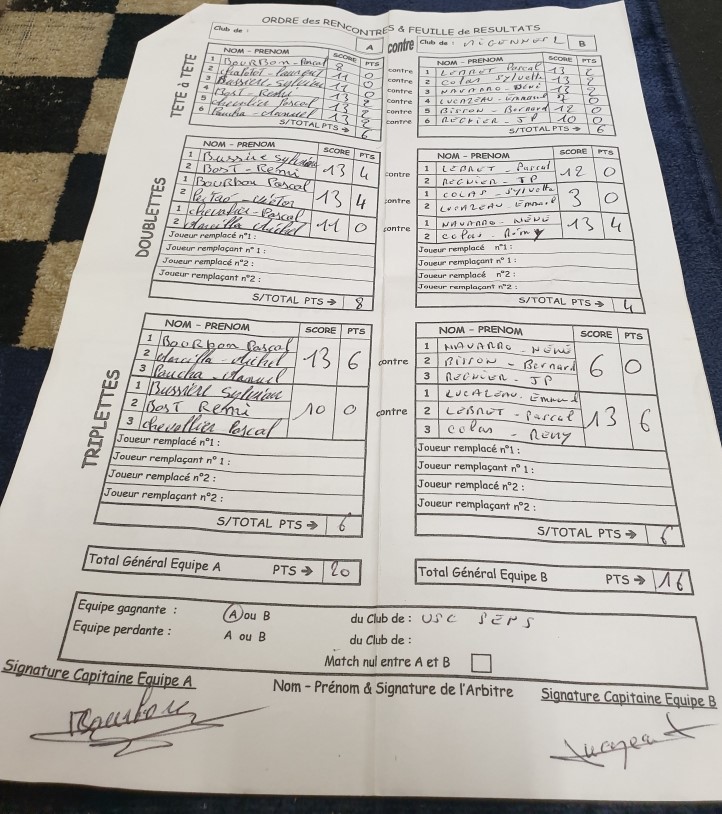 ORDRE des RENCONTRES & FEUILLE de RESULTATS
Club de : A contre Club de : B
TETE à TETE
NOM - PRENOM SCORE PTS
1 Bourbon - Pascal 8 0
2 11 0
3 Bussiere - Sylviane 11 0
4 Bost - Remi 13 2
5 Chevallier Pascal 13 2
6 Paucha - Manuel 13 2
S/TOTAL PTS → 6
contre
contre
contre
contre
contre
contre
NOM - PRENOM SCORE PTS
1 LEBRUT Pascal 13 2
2 Colas Sylvette 13 2
3 NAVARRO - Néné 13 2
4 LUCAZEAU - Emmanuel 0
5 BISSON - Bernard 12 0
6 REGNIER - JP 10 0
S/TOTAL PTS → 6
DOUBLETTES
NOM - PRENOM SCORE PTS
1 Bussiere Sylviane 13 4
2 Bost - Remi
1 Bourbon Pascal 13 4
2
1 Chevallier - Pascal 11 0
2 Marcilla Michel
Joueur remplacé n°1 :
Joueur remplaçant n°1 :
Joueur remplacé n°2 :
Joueur remplaçant n°2 :
S/TOTAL PTS → 8
contre
contre
contre
NOM - PRENOM SCORE PTS
1 LEBRUT - Pascal 12 0
2 REGNIER JP
1 COLAS - Sylvette 3 0
2 LUCAZEAU - Emmanuel
1 NAVARRO - NÉNÉ 13 4
2 Colas - Rémy
Joueur remplacé n°1 :
Joueur remplaçant n°1 :
Joueur remplacé n°2 :
Joueur remplaçant n°2 :
S/TOTAL PTS → 4
TRIPLETTES
NOM - PRENOM SCORE PTS
1 Bourbon Pascal 13 6
2 Marcilla - Michel
3 Paucha - Manuel
1 Bussiere Sylviane 10 0
2 Bost Remi
3 Chevallier Pascal
Joueur remplacé n°1 :
Joueur remplaçant n°1 :
Joueur remplacé n°2 :
Joueur remplaçant n°2 :
S/TOTAL PTS → 6
contre
contre
NOM - PRENOM SCORE PTS
1 NAVARRO - NÉNÉ 6 0
2 BISSON - Bernard
3 REGNIER - JP
1 LUCAZEAU - Emmanuel 13 6
2 LEBRUT - Pascal
3 Colas - Rémy
Joueur remplacé n°1 :
Joueur remplaçant n°1 :
Joueur remplacé n°2 :
Joueur remplaçant n°2 :
S/TOTAL PTS → 6
Total Général Equipe A PTS → 20
Total Général Equipe B PTS → 16
Equipe gagnante : A ou B du Club de : USC SEPS
Equipe perdante : A ou B du Club de :
Match nul entre A et B
Signature Capitaine Equipe A
Nom - Prénom & Signature de l'Arbitre
Signature Capitaine Equipe B